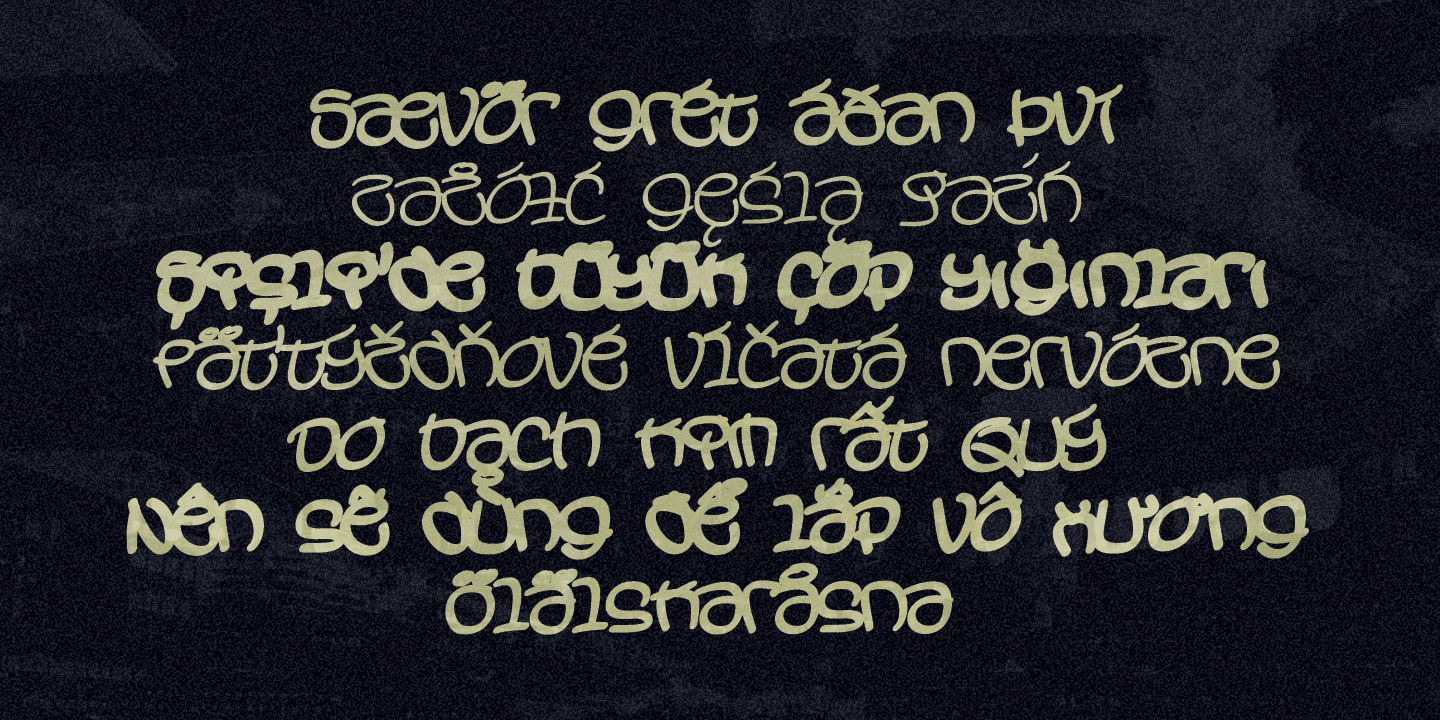 Sævör grét áðan því
zażółć gęślą jaźń
Şişli'de büyük çöp yığınları
Päťtyždňové vĺčatá nervózne
Do bạch kim rất quý
Nên sẽ dùng để lắp vô xương
Ölälskaråsna